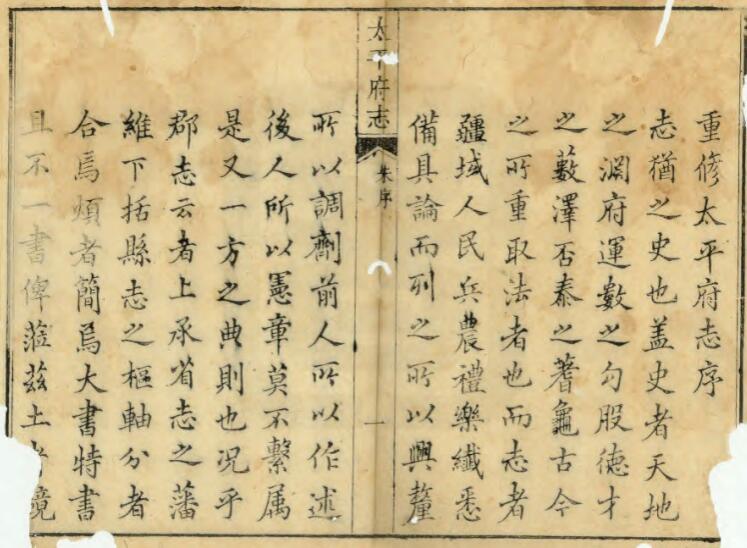 重修太平府志序
志猶之史也盖史者天地
之淵府運數之勾股德才
之藪澤否泰之蓍龜古今
之所重取法者也而志者
疆域人民兵農禮樂纖悉
備具論而列之所以興釐
太平府志
朱序
一
所以調劑前人所以作述
後人所以憲章莫不繫属
是又一方之典則也况乎
郡志云者上承省志之藩
維下括縣志之樞軸分者
合焉煩者簡焉大書特書
且不一書俾蒞兹土者